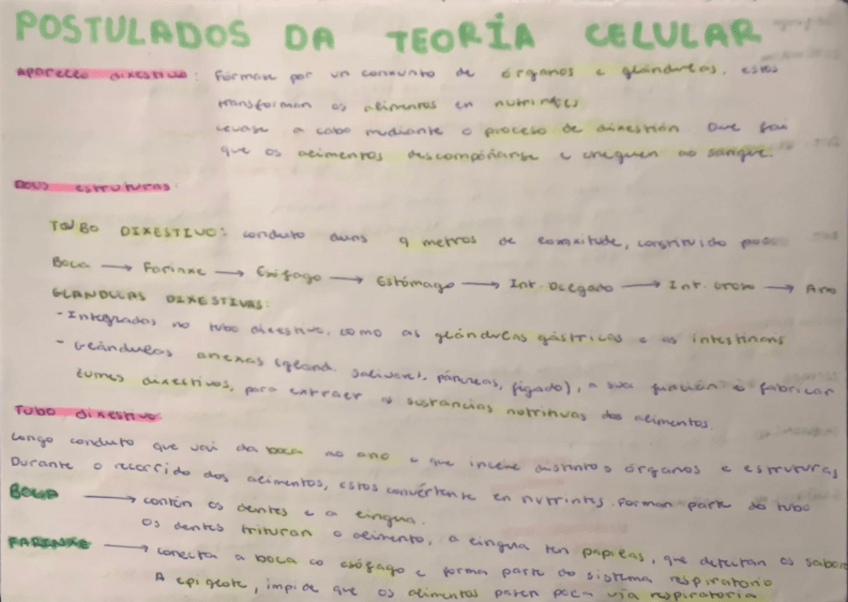 POSTULADOS DA TEORÍA CELULAR
APARELLO DIXESTIVO: Fórmase por un conxunto de órganos e glándulas, estes
transforman os alimentos en nutrintes
Levase a cabo mediante o proceso de dixestión que fai
que os alimentos descompóñanse e cheguen ao sangue.
DOUS estruturas:
TOUBO DIXESTIVO: conduto duns 9 metros de lonxitude, constituido
Boca → Farinxe → Esófago → Estómago → Int. Delgado → Int. Groso → Ano
GLANDULAS DIXESTIVAS:
- Integradas no tubo dixestivo, como as glándulas gástricas e as intestinais
- Glándulas anexas (gland. salivares, páncreas, fígado), a súa función é fabricar
zumes dixestivos, para extraer as sustancias nutritivas dos alimentos.
Tubo dixestivo
Longo conduto que vai da boca ao ano e que inclúe distintos órganos e estruturas
Durante o recorrido dos alimentos, estos convértense en nutrintes. Forman parte do tubo
BOCA → contén os dentes e a lingua.
Os dentes trituran o alimento, a lingua ten papilas, que detectan os sabor
FARINXE → conecta a boca co esófago e forma parte do sistema respiratorio
A epiglote, impide que os alimentos pasen pola vía respiratoria